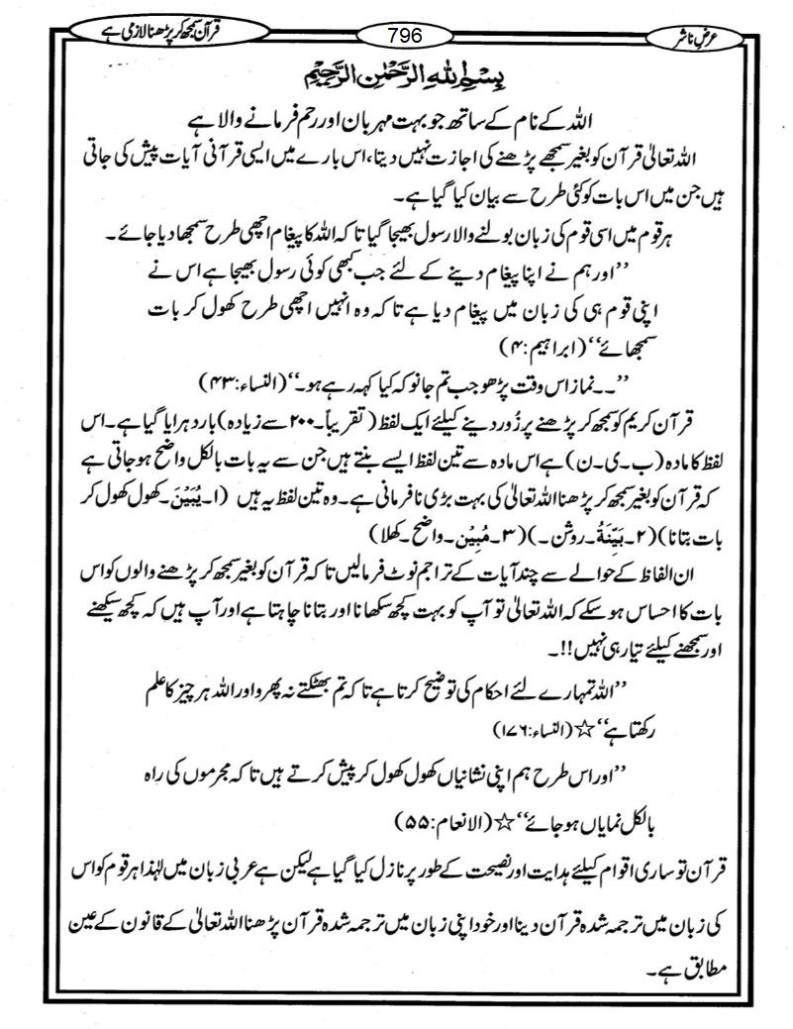 قرآن سمجھ کر پڑھنا لازمی ہے
796
عرضِ ناشر
بِسْمِ اللهِ الرَّحْمٰنِ الرَّحِيْمِ
اللہ کے نام کے ساتھ جو بہت مہربان اور رحم فرمانے والا ہے
اللہ تعالیٰ قرآن کو بغیر سمجھے پڑھنے کی اجازت نہیں دیتا، اس بارے میں ایسی قرآنی آیات پیش کی جاتی
ہیں جن میں اس بات کو کئی طرح سے بیان کیا گیا ہے۔
ہر قوم میں اسی قوم کی زبان بولنے والا رسول بھیجا گیا تا کہ اللہ کا پیغام اچھی طرح سمجھا دیا جائے۔
’’اور ہم نے اپنا پیغام دینے کے لئے جب کبھی کوئی رسول بھیجا ہے اس نے
اپنی قوم ہی کی زبان میں پیغام دیا ہے تا کہ وہ انہیں اچھی طرح کھول کر بات
سمجھائے‘‘ (ابراہیم:۴)
’’۔۔نماز اس وقت پڑھو جب تم جانو کہ کیا کہہ رہے ہو۔‘‘ (النساء:۴۳)
قرآن کریم کو سمجھ کر پڑھنے پر زُور دینے کیلئے ایک لفظ (تقریباً۔۲۰۰ سے زیادہ) بار دہرایا گیا ہے۔ اس
لفظ کا مادہ (ب۔ی۔ن) ہے اس مادہ سے تین لفظ ایسے بنتے ہیں جن سے یہ بات بالکل واضح ہو جاتی ہے
کہ قرآن کو بغیر سمجھ کر پڑھنا اللہ تعالیٰ کی بہت بڑی نافرمانی ہے۔ وہ تین لفظ یہ ہیں (۱۔یُبَیِّنَ۔کھول کھول کر
بات بتانا) (۲۔بَیِّنَةُ۔روشن۔) (۳۔مُبِیْن۔واضح۔کھلا)
ان الفاظ کے حوالے سے چند آیات کے تراجم نوٹ فرمالیں تا کہ قرآن کو بغیر سمجھ کر پڑھنے والوں کو اس
بات کا احساس ہو سکے کہ اللہ تعالیٰ تو آپ کو بہت کچھ سکھانا اور بتانا چاہتا ہے اور آپ ہیں کہ کچھ سیکھنے
اور سمجھنے کیلئے تیار ہی نہیں!!۔
’’اللہ تمہارے لئے احکام کی توضیح کرتا ہے تا کہ تم بھٹکتے نہ پھرو اور اللہ ہر چیز کا علم
رکھتا ہے‘‘ ☆ (النساء:۱۷۶)
’’اور اس طرح ہم اپنی نشانیاں کھول کھول کر پیش کرتے ہیں تا کہ مجرموں کی راہ
بالکل نمایاں ہو جائے‘‘ ☆ (الانعام:۵۵)
قرآن تو ساری اقوام کیلئے ہدایت اور نصیحت کے طور پر نازل کیا گیا ہے لیکن ہے عربی زبان میں لہٰذا ہر قوم کو اس
کی زبان میں ترجمہ شدہ قرآن دینا اور خود اپنی زبان میں ترجمہ شدہ قرآن پڑھنا اللہ تعالیٰ کے قانون کے عین
مطابق ہے۔